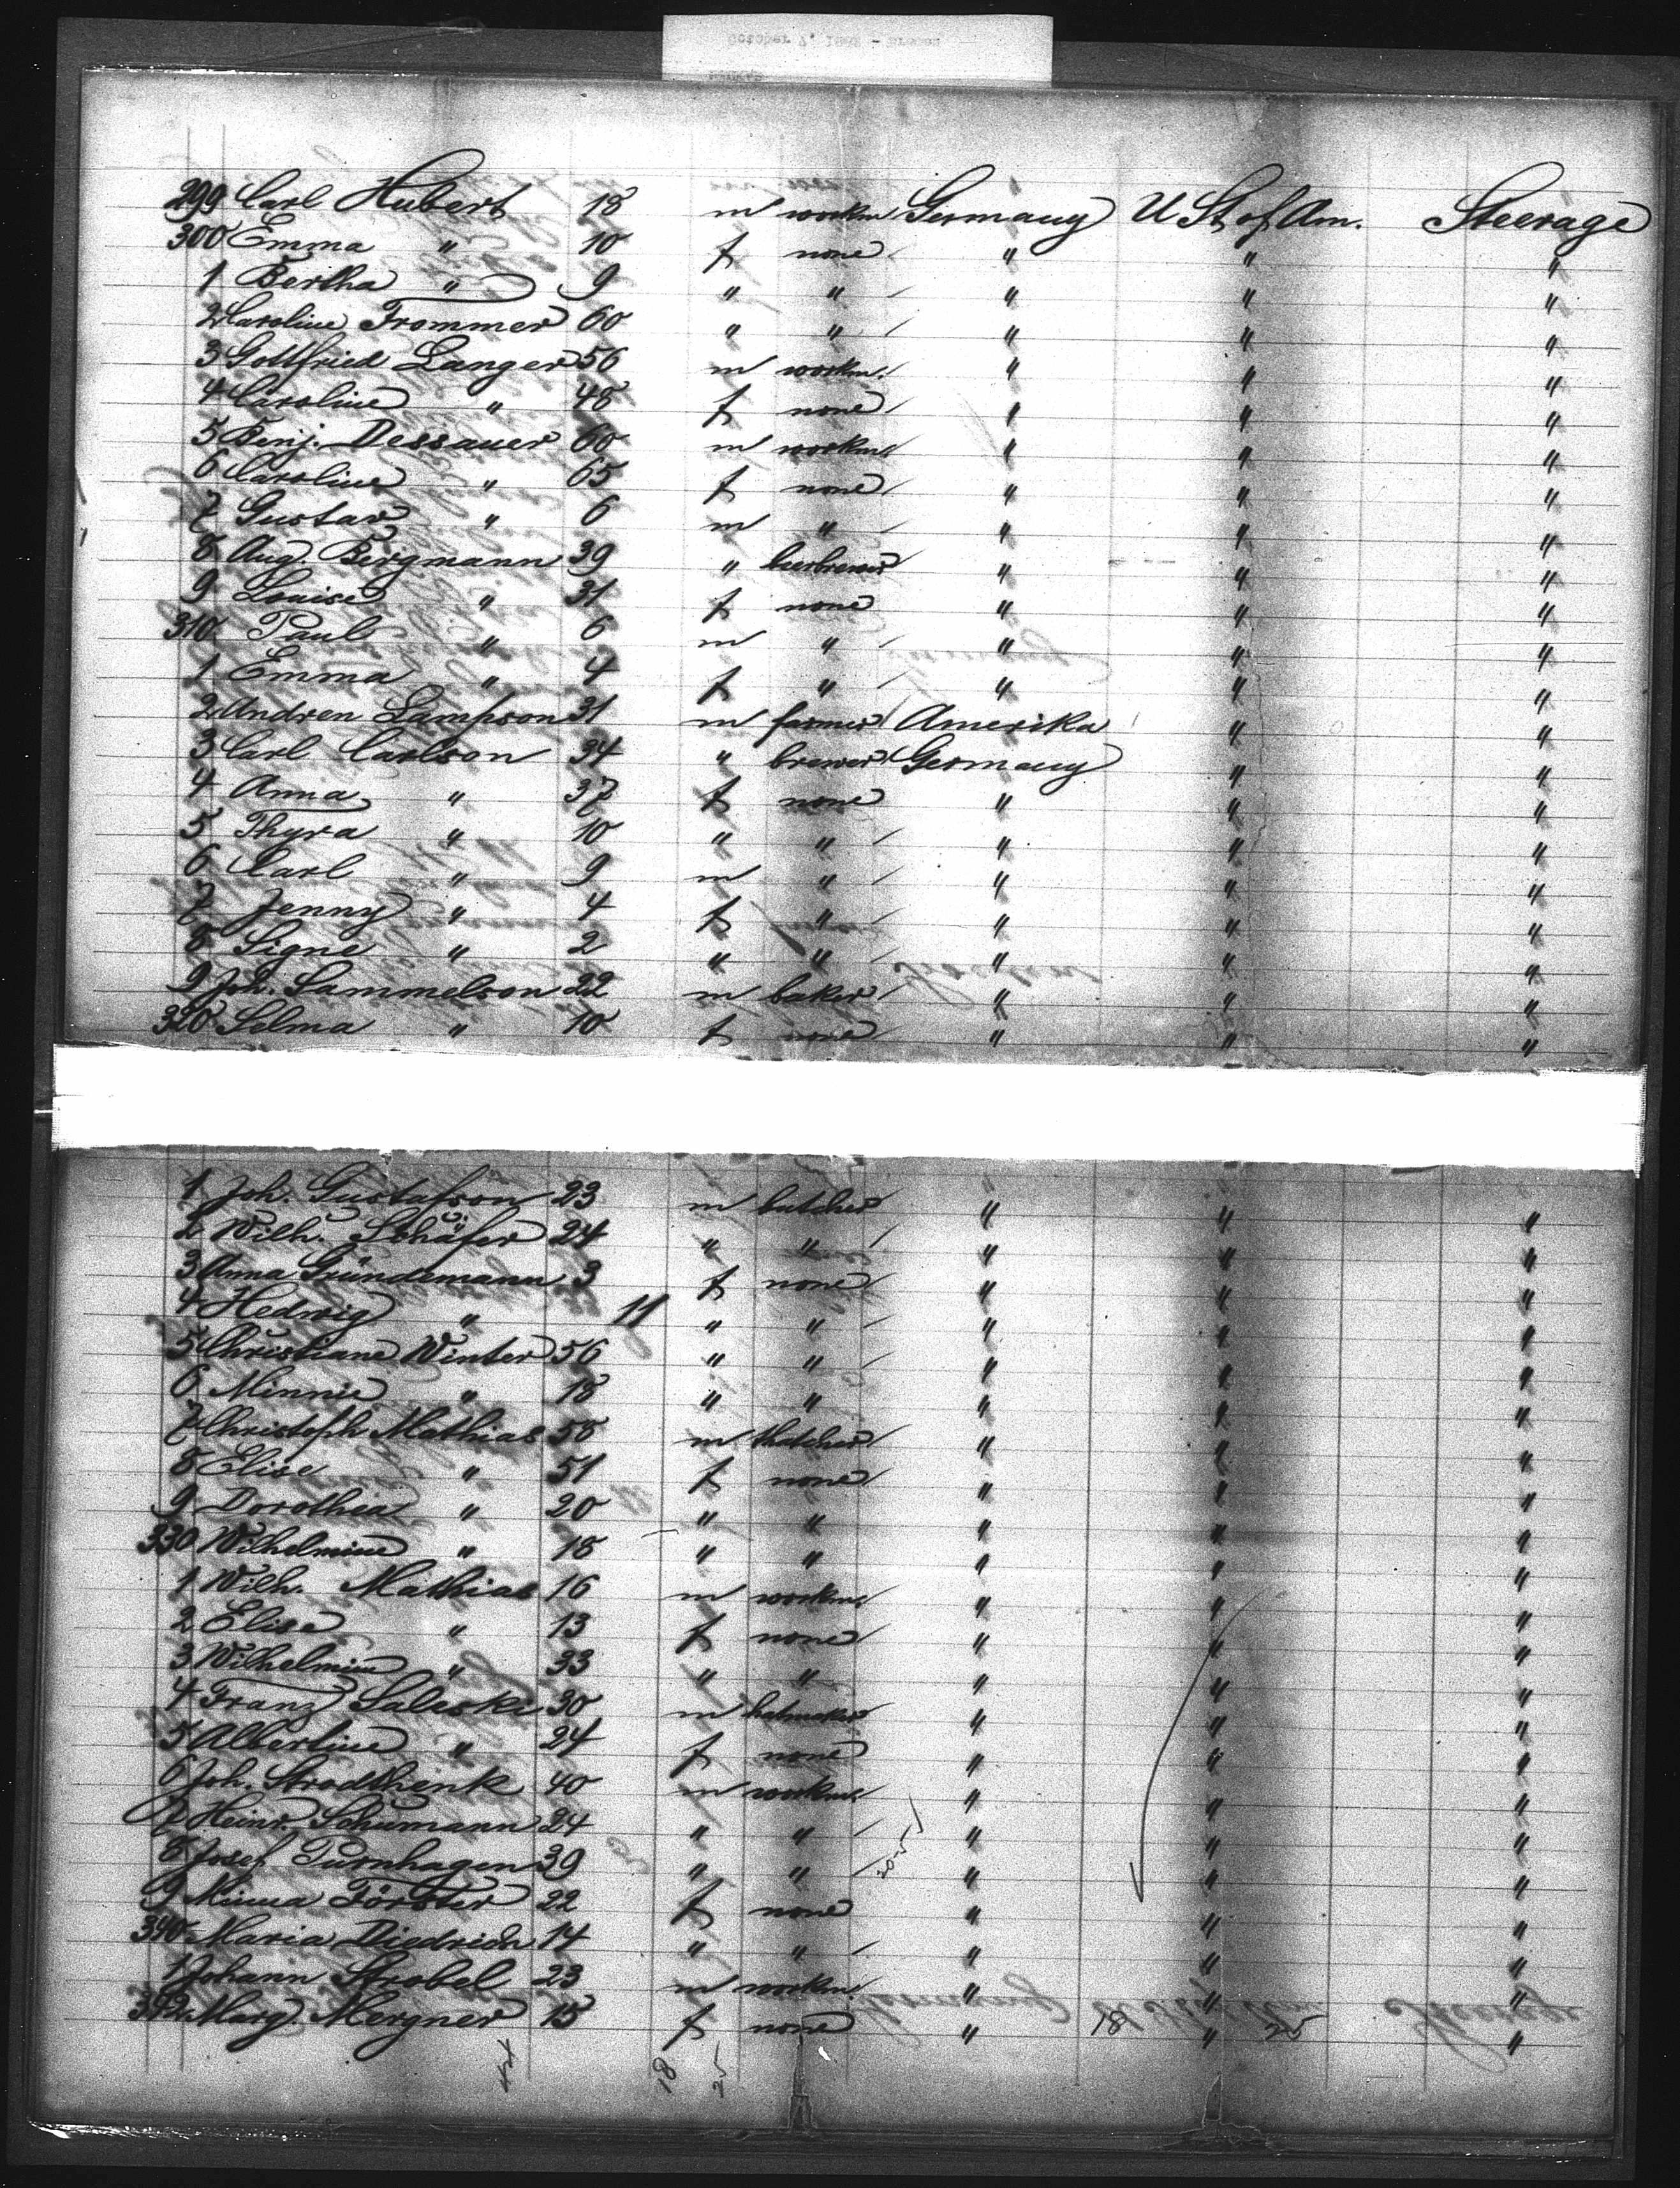 299 Carl Hubert 18 m workm Germany U St of Am. Steerage
300 Emma " 10 f none " " "
1 Bertha " 9 " " " " "
2 Caroline Frommer 60 " " " " "
3 Gottfried Langer 56 m workm. " " "
4 Caroline " 48 f none " " "
5 Benj. Dessauer 60 m workm " " "
6 Caroline " 65 f none " " "
7 Gustav " 6 m " " " "
8 Aug. Bergmann 39 " beerbrewer " " "
9 Louise " 31 f none " " "
310 Paul " 6 m " " " "
1 Emma " 4 f " " " "
2 Andren Lampson 31 m farmer Amerika " "
3 Carl Carlson 34 " brewer Germany " "
4 Anna " 37 f none " " "
5 Thyra " 10 " " " " "
6 Carl " 9 m " " " "
7 Jenny " 4 f " " " "
8 Signe " 2 " " " " "
9 Joh. Sammelson 22 m baker " " "
320 Selma " 10 f none " " "
1 Joh. Gustafson 23 m butcher " " "
2 Wilh. Schäfer 24 " " " " "
3 Anna Gründemann 3 f none " " "
4 Hedwig " 11 " " " " "
5 Christiane Winter 56 " " " " "
6 Minnie " 18 " " " " "
7 Christoph Mathias 58 m thatcher " " "
8 Elise " 51 f none " " "
9 Dorothea " 20 " " " " "
330 Wilhelmine " 18 " " " " "
1 Wilh. Mathias 16 m workm " " "
2 Elise " 13 f none " " "
3 Wilhelmine " 33 " " " " "
4 Franz Saleski 30 m hatmaker " " "
5 Albertine " 24 f none " " "
6 Joh. Strodthenk 40 m workm. " " "
7 Heinr. Schumann 24 " " " " "
8 Josef Turnhagen 39 " " " " "
9 Minna Förster 22 f none " " "
340 Maria Diedrich 14 " " " " "
1 Johann Strobel 23 m workm. " " "
342 Marg. Mergner 15 f none " 18 " 25 "
44 18 25